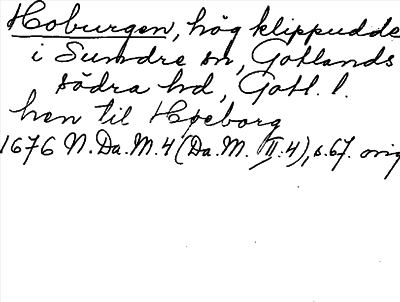 Hoburgen, hög klippudde
i Sundre sn, Gotlands
södra hd, Gotl. l.
hen til Hoeborg
1676 N.Da.M. 4 (Da.M. II:4), s.67. orig